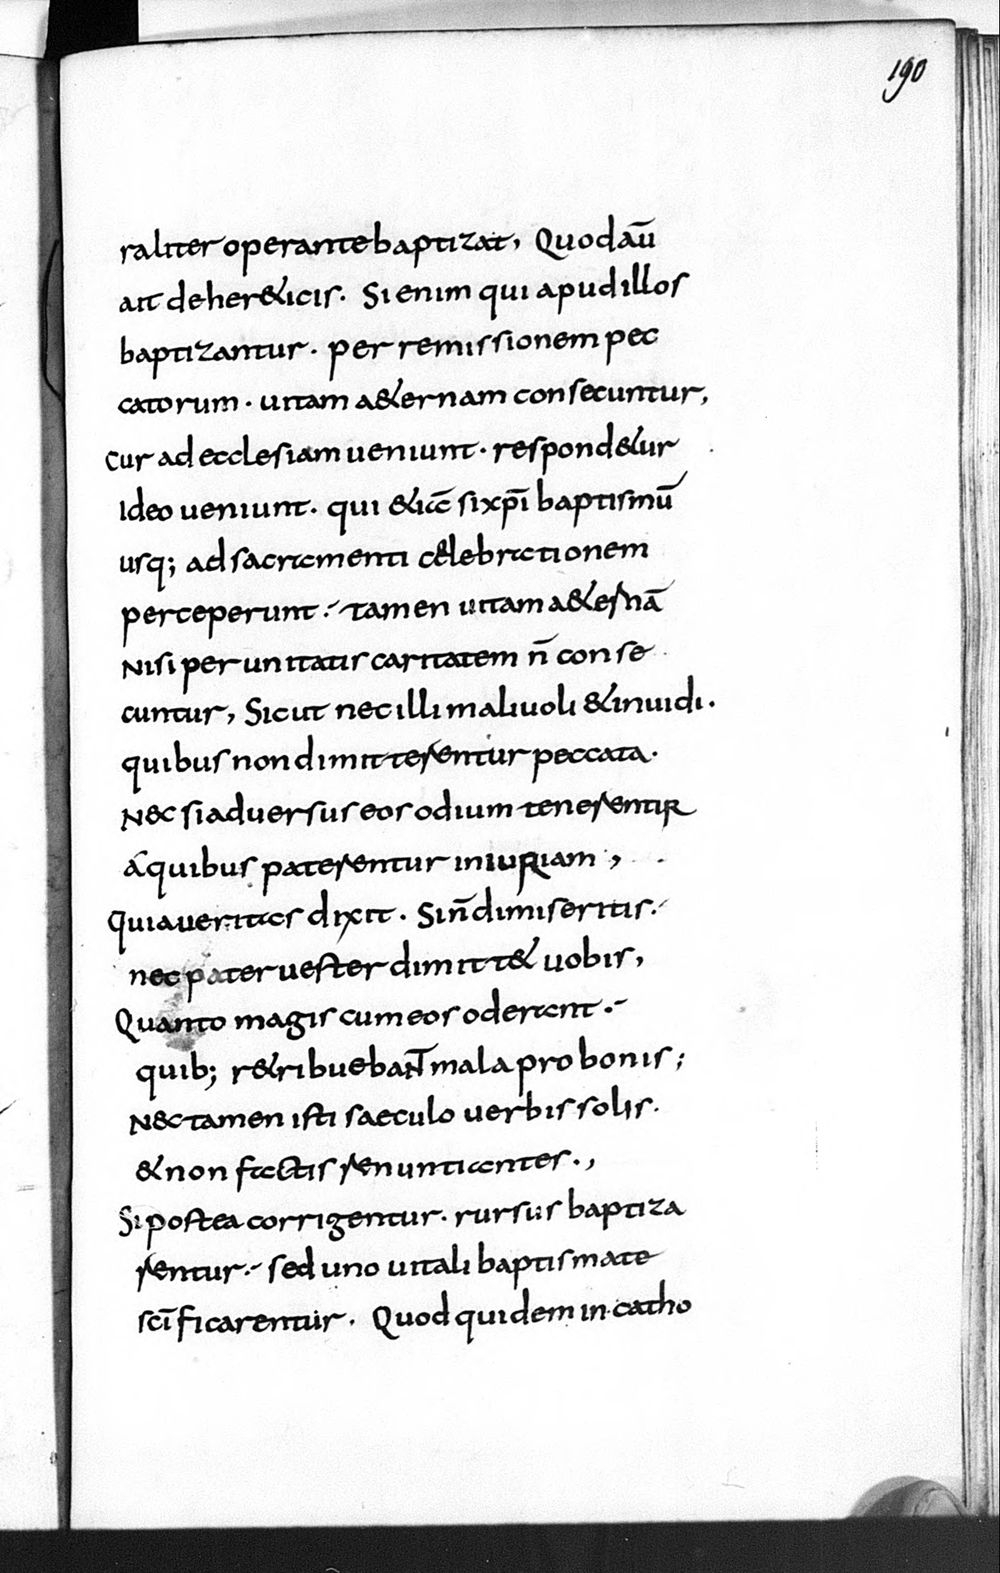 190
raliter operante baptizat, Quod aū
ait de her&icis. Si enim qui apud illos
baptizantur. per remissionem pec
catorum. uitam a&ernam consecuntur,
cur ad ecclesiam ueniunt. respond&ur
Ideo ueniunt. qui &iā si xp̄i baptismū
usq; ad sacramenti celebrationem
perceperunt. tamen uitam a&ernā
Nisi per unitatis caritatem n̄ conse
cuntur, Sicut nec illi maliuoli & inuidi.
quibus non dimitterentur peccata.
Nec si aduersus eos odium tenerentur
a quibus paterentur iniuriam,
Quia ueritas dixit. Si n̄ dimiseritis.
nec pater uester dimitt& uobis,
Quanto magis cum eos oderant.
quib; r&ribuebaN̄T mala pro bonis;
Nec tamen isti saeculo uerbis solis.
& non factis renuntiantes.,
Si postea corrigentur. rursus baptiza
rentur. sed uno uitali baptismate
sc̄ificarentur. Quod quidem in catho